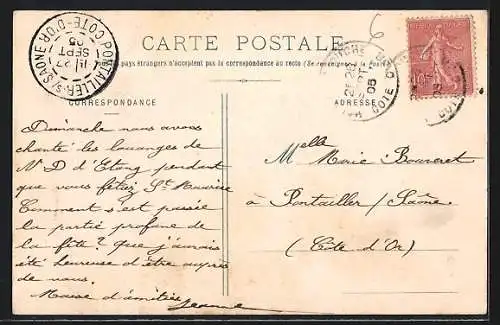 CARTE POSTALE
pays étrangers n'acceptent pas la correspondance au recto (Se renseigner à la Poste)
PONTAILLER-S/-SAÔNE
CÔTE-D'OR
27
SEPT
05
26
SEPT
05
COTE D'OR
10
CORRESPONDANCE
ADRESSE
Dimanche nous avons
chanté les louanges de
N D d'Etang pendant
que vous fêtiez St Maurice
Comment s'est passée
la partie profane de
la fête ? que j'aurais
été heureuse d'être auprès
de vous.
Masse d'amitiés
Jeanne
Melle Marie Bouveret
à Pontailler / Saône
(Côte d'Or)